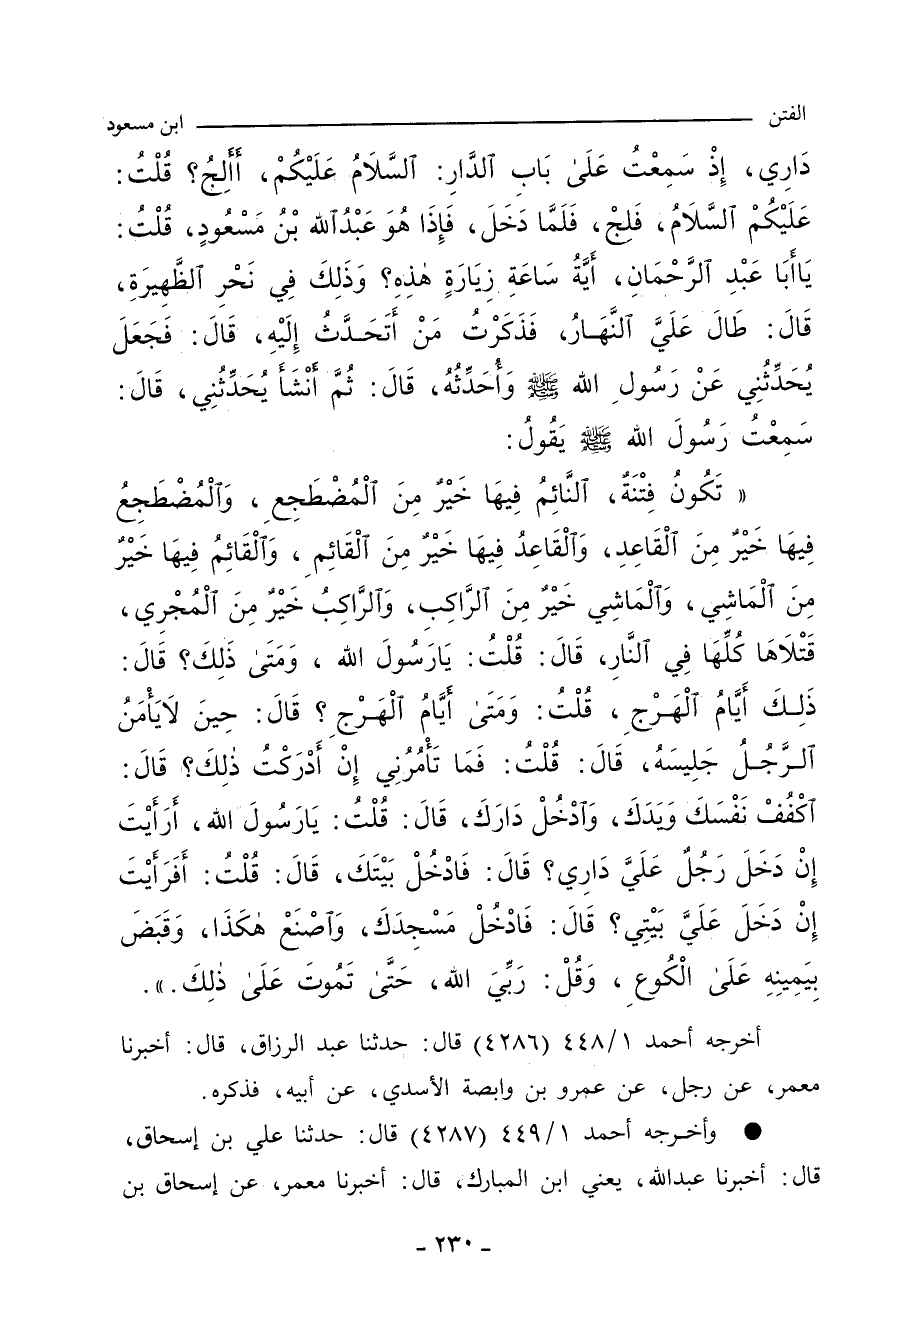 الفتن ابن مسعود
دَارِي، إِذْ سَمِعْتُ عَلَىٰ بَابِ ٱلدَّارِ: ٱلسَّلَامُ عَلَيْكُمْ، أَأَلِجُ؟ قُلْتُ:
عَلَيْكُمْ ٱلسَّلَامُ، فَلِجْ، فَلَمَّا دَخَلَ، فَإِذَا هُوَ عَبْدُٱلله بْنُ مَسْعُودٍ، قُلْتُ:
يَاأَبَا عَبْدِ ٱلرَّحْمَانِ، أَيَّةُ سَاعَةِ زِيَارَةٍ هٰذِهِ؟ وَذَلِكَ فِي نَحْرِ ٱلظَّهِيرَةِ،
قَالَ: طَالَ عَلَيَّ ٱلنَّهَارُ، فَذَكَرْتُ مَنْ أَتَحَدَّثُ إِلَيْهِ، قَالَ: فَجَعَلَ
يُحَدِّثُنِي عَنْ رَسُولِ الله ﷺ وَأُحَدِّثُهُ، قَالَ: ثُمَّ أَنْشَأَ يُحَدِّثُنِي، قَالَ:
سَمِعْتُ رَسُولَ الله ﷺ يَقُولُ:
« تَكُونُ فِتْنَةٌ، ٱلنَّائِمُ فِيهَا خَيْرٌ مِنَ ٱلْمُضْطَجِعِ، وَٱلْمُضْطَجِعُ
فِيهَا خَيْرٌ مِنَ ٱلْقَاعِدِ، وَٱلْقَاعِدُ فِيهَا خَيْرٌ مِنَ ٱلْقَائِمِ، وَٱلْقَائِمُ فِيهَا خَيْرٌ
مِنَ ٱلْمَاشِي، وَٱلْمَاشِي خَيْرٌ مِنَ ٱلرَّاكِبِ، وَٱلرَّاكِبُ خَيْرٌ مِنَ ٱلْمُجْرِي،
قَتْلَاهَا كُلُّهَا فِي ٱلنَّارِ، قَالَ: قُلْتُ: يَارَسُولَ الله ، وَمَتَىٰ ذَلِكَ؟ قَالَ:
ذَلِكَ أَيَّامُ ٱلْهَرْجِ، قُلْتُ: وَمَتَىٰ أَيَّامُ ٱلْهَرْجِ؟ قَالَ: حِينَ لَايَأْمَنُ
ٱلرَّجُلُ جَلِيسَهُ، قَالَ: قُلْتُ: فَمَا تَأْمُرُنِي إِنْ أَدْرَكْتُ ذٰلِكَ؟ قَالَ:
ٱكْفُفْ نَفْسَكَ وَيَدَكَ، وَٱدْخُلْ دَارَكَ، قَالَ: قُلْتُ: يَارَسُولَ الله، أَرَأَيْتَ
إِنْ دَخَلَ رَجُلٌ عَلَيَّ دَارِي؟ قَالَ: فَادْخُلْ بَيْتَكَ، قَالَ: قُلْتُ: أَفَرَأَيْتَ
إِنْ دَخَلَ عَلَيَّ بَيْتِي؟ قَالَ: فَادْخُلْ مَسْجِدَكَ، وَٱصْنَعْ هٰكَذَا، وَقَبَضَ
بِيَمِينِهِ عَلَىٰ الْكُوعِ، وَقُلْ: رَبِّيَ الله، حَتَّىٰ تَمُوتَ عَلَىٰ ذٰلِكَ.».
أخرجه أحمد ١/٤٤٨ (٤٢٨٦) قال: حدثنا عبد الرزاق، قال: أخبرنا
معمر، عن رجل، عن عمرو بن وابصة الأسدي، عن أبيه، فذكره.
● وأخرجه أحمد ١/٤٤٩ (٤٢٨٧) قال: حدثنا علي بن إسحاق،
قال: أخبرنا عبدالله، يعني ابن المبارك، قال: أخبرنا معمر، عن إسحاق بن
- ٢٣٠ -